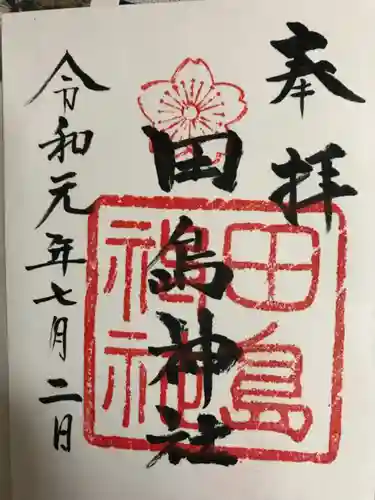 奉拝
田島神社
田島
神社
令和元年七月二日